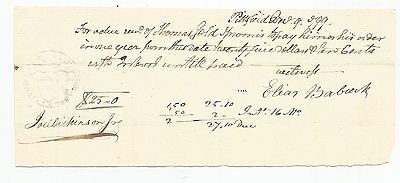 Pittsfield Dec 9. 1799.
For value recd of Thomas Gold I promis to pay him or his order
in one year from this date twenty five dollars & ten Cents
with Interest untill paid
witness
Elias Babcock
$25-10
1,50 25-10 Int. 16 Mo.
,50 2-
2 27,10 Due
Joel Dickinson Jr